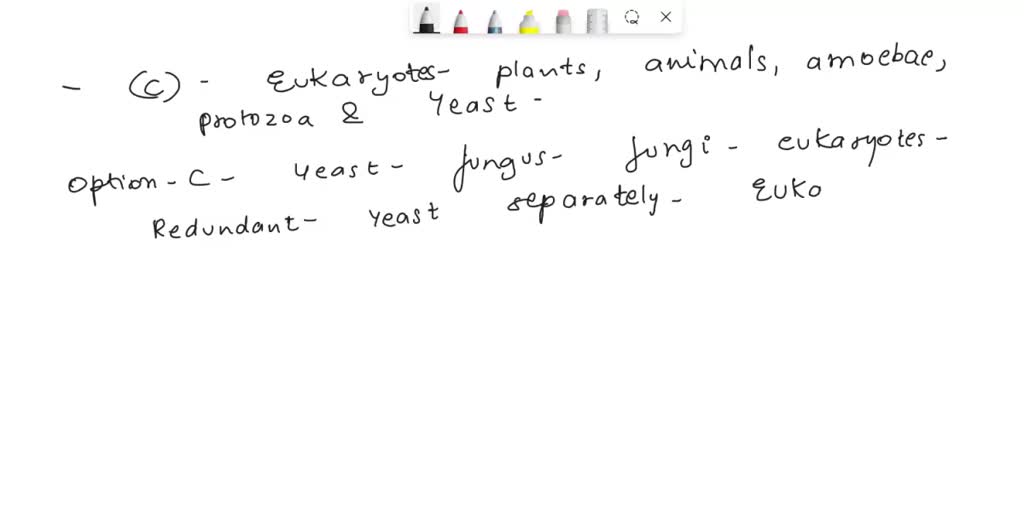 - (C) - Eukaryotes- plants, animals, amoebae,
protozoa & Yeast -
Option - C - Yeast - fungus - fungi - eukaryotes -
Redundant - Yeast separately - Euko